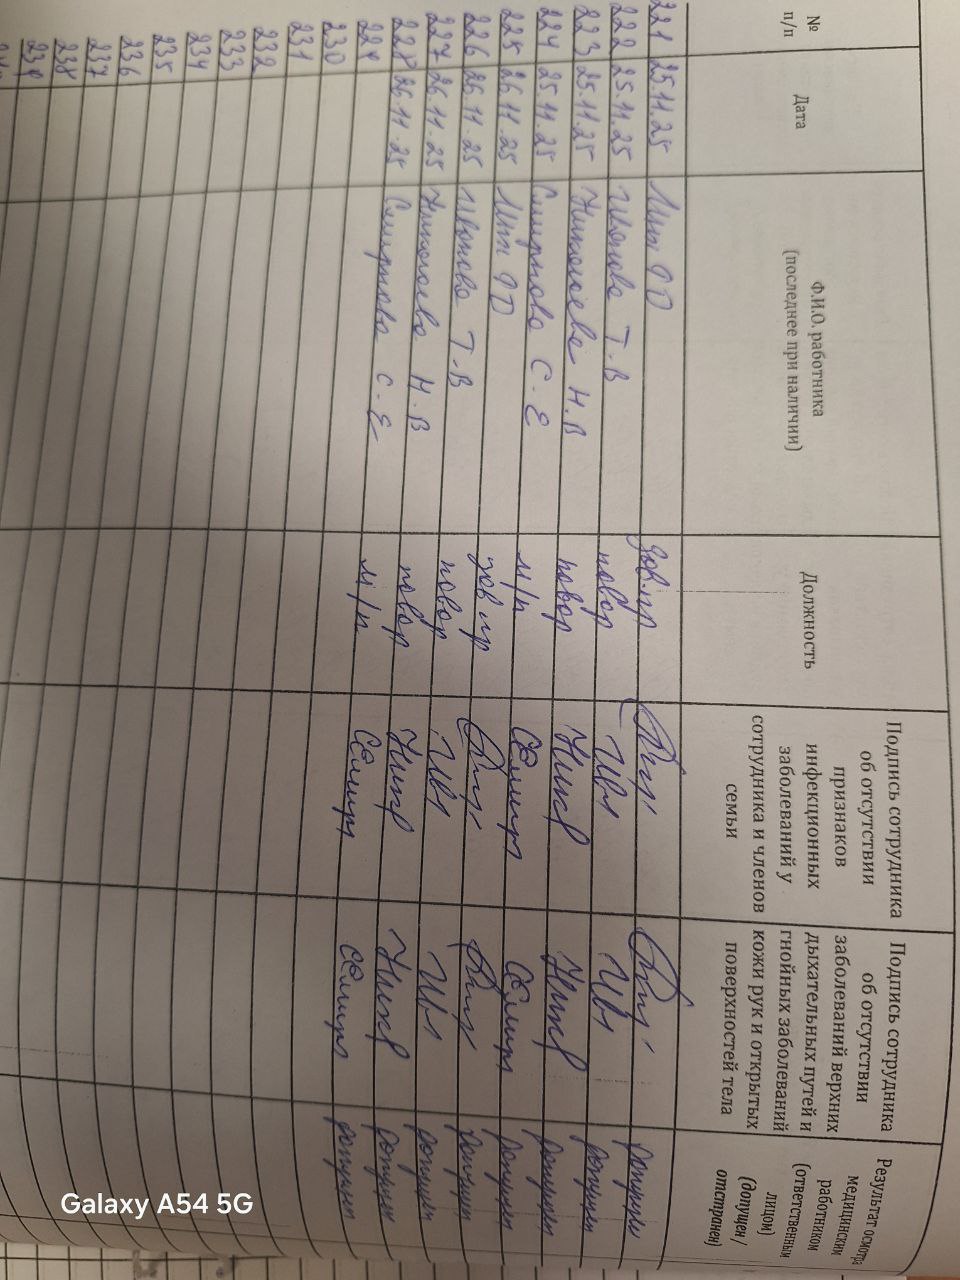 № п/п Дата Ф.И.О. работника (последнее при наличии) Должность Подпись сотрудника об отсутствии признаков инфекционных заболеваний у сотрудника и членов семьи Подпись сотрудника об отсутствии заболеваний верхних дыхательных путей и гнойных заболеваний кожи рук и открытых поверхностей тела Результат осмотра медицинским работником (ответственным лицом) (допущен / отстранен)
221 25.11.25 допущен
222 25.11.25 Иванова Т.В повар Ив Ив допущен
223 25.11.25 Николаева Н.В повар допущен
224 25.11.25 Смирнова С.Е м/п допущен
225 26.11.25 допущен
226 26.11.25 Иванова Т.В повар Ив Ив допущен
227 26.11.25 Николаева Н.В повар допущен
228 26.11.25 Смирнова С.Е м/п допущен
229
230
231
232
233
234
235
236
237
238
239
Galaxy A54 5G